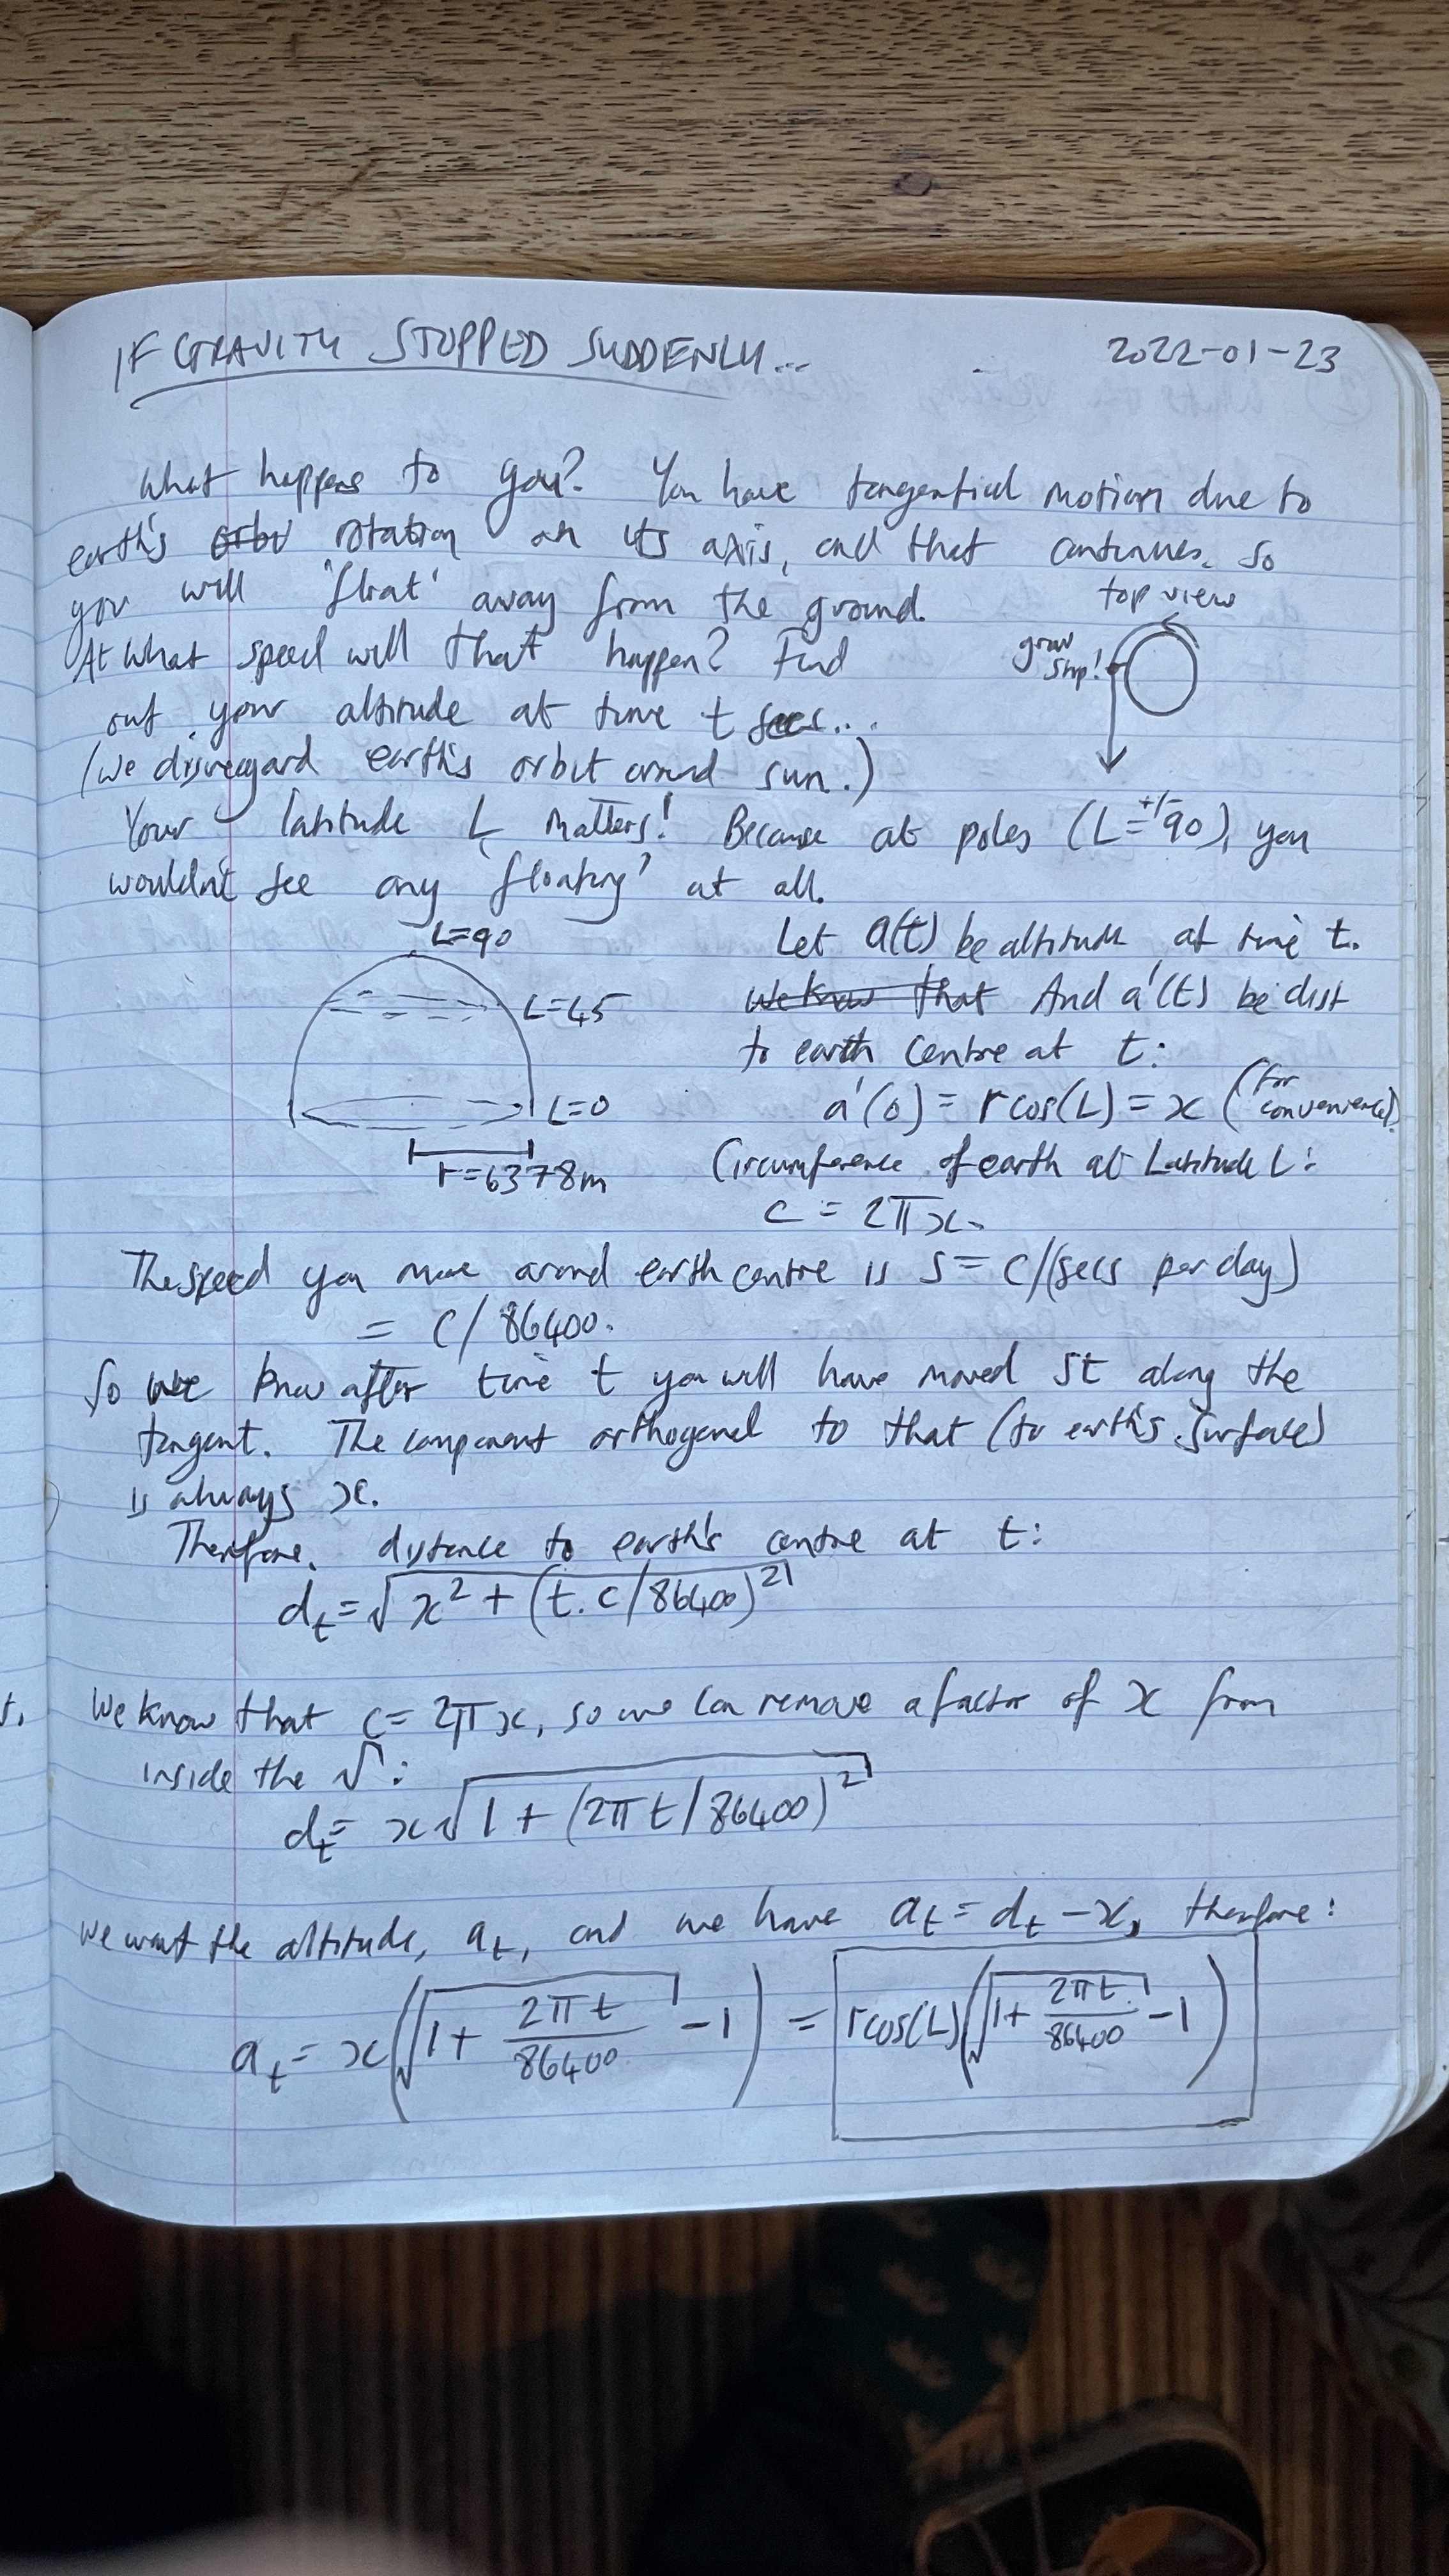 IF GRAVITY STOPPED SUDDENLY... 2022-01-23
What happens to you? You have tangential motion due to
earth's orbi rotation on its axis, and that continues. So
you will 'float' away from the ground.
top view
grav
stop!
At what speed will that happen? Find
out your altitude at time t secs...
(we disregard earth's orbit around sun.)
Your latitude L matters! Because at poles (L=+/-90), you
wouldn't see any 'floating' at all.
L=90
L=45
L=0
r=6378m
Let a(t) be altitude at time t.
We know that And a'(t) be dist
to earth centre at t:
a'(0) = r cos(L) = x (for convenience).
Circumference of earth at Latitude L:
c = 2πx.
The speed you move around earth centre is s = c/(secs per day)
= c/86400.
So we know after time t you will have moved st along the
tangent. The component orthogonal to that (to earth's surface)
is always x.
Therefore, distance to earth's centre at t:
d_t = √(x² + (t.c/86400)²)
We know that c = 2πx, so we can remove a factor of x from
inside the √:
d_t = x√(1 + (2πt/86400)²)
We want the altitude, a_t, and we have a_t = d_t - x, therefore:
a_t = x(√(1 + 2πt/86400) - 1) = r cos(L)(√(1 + 2πt/86400) - 1)